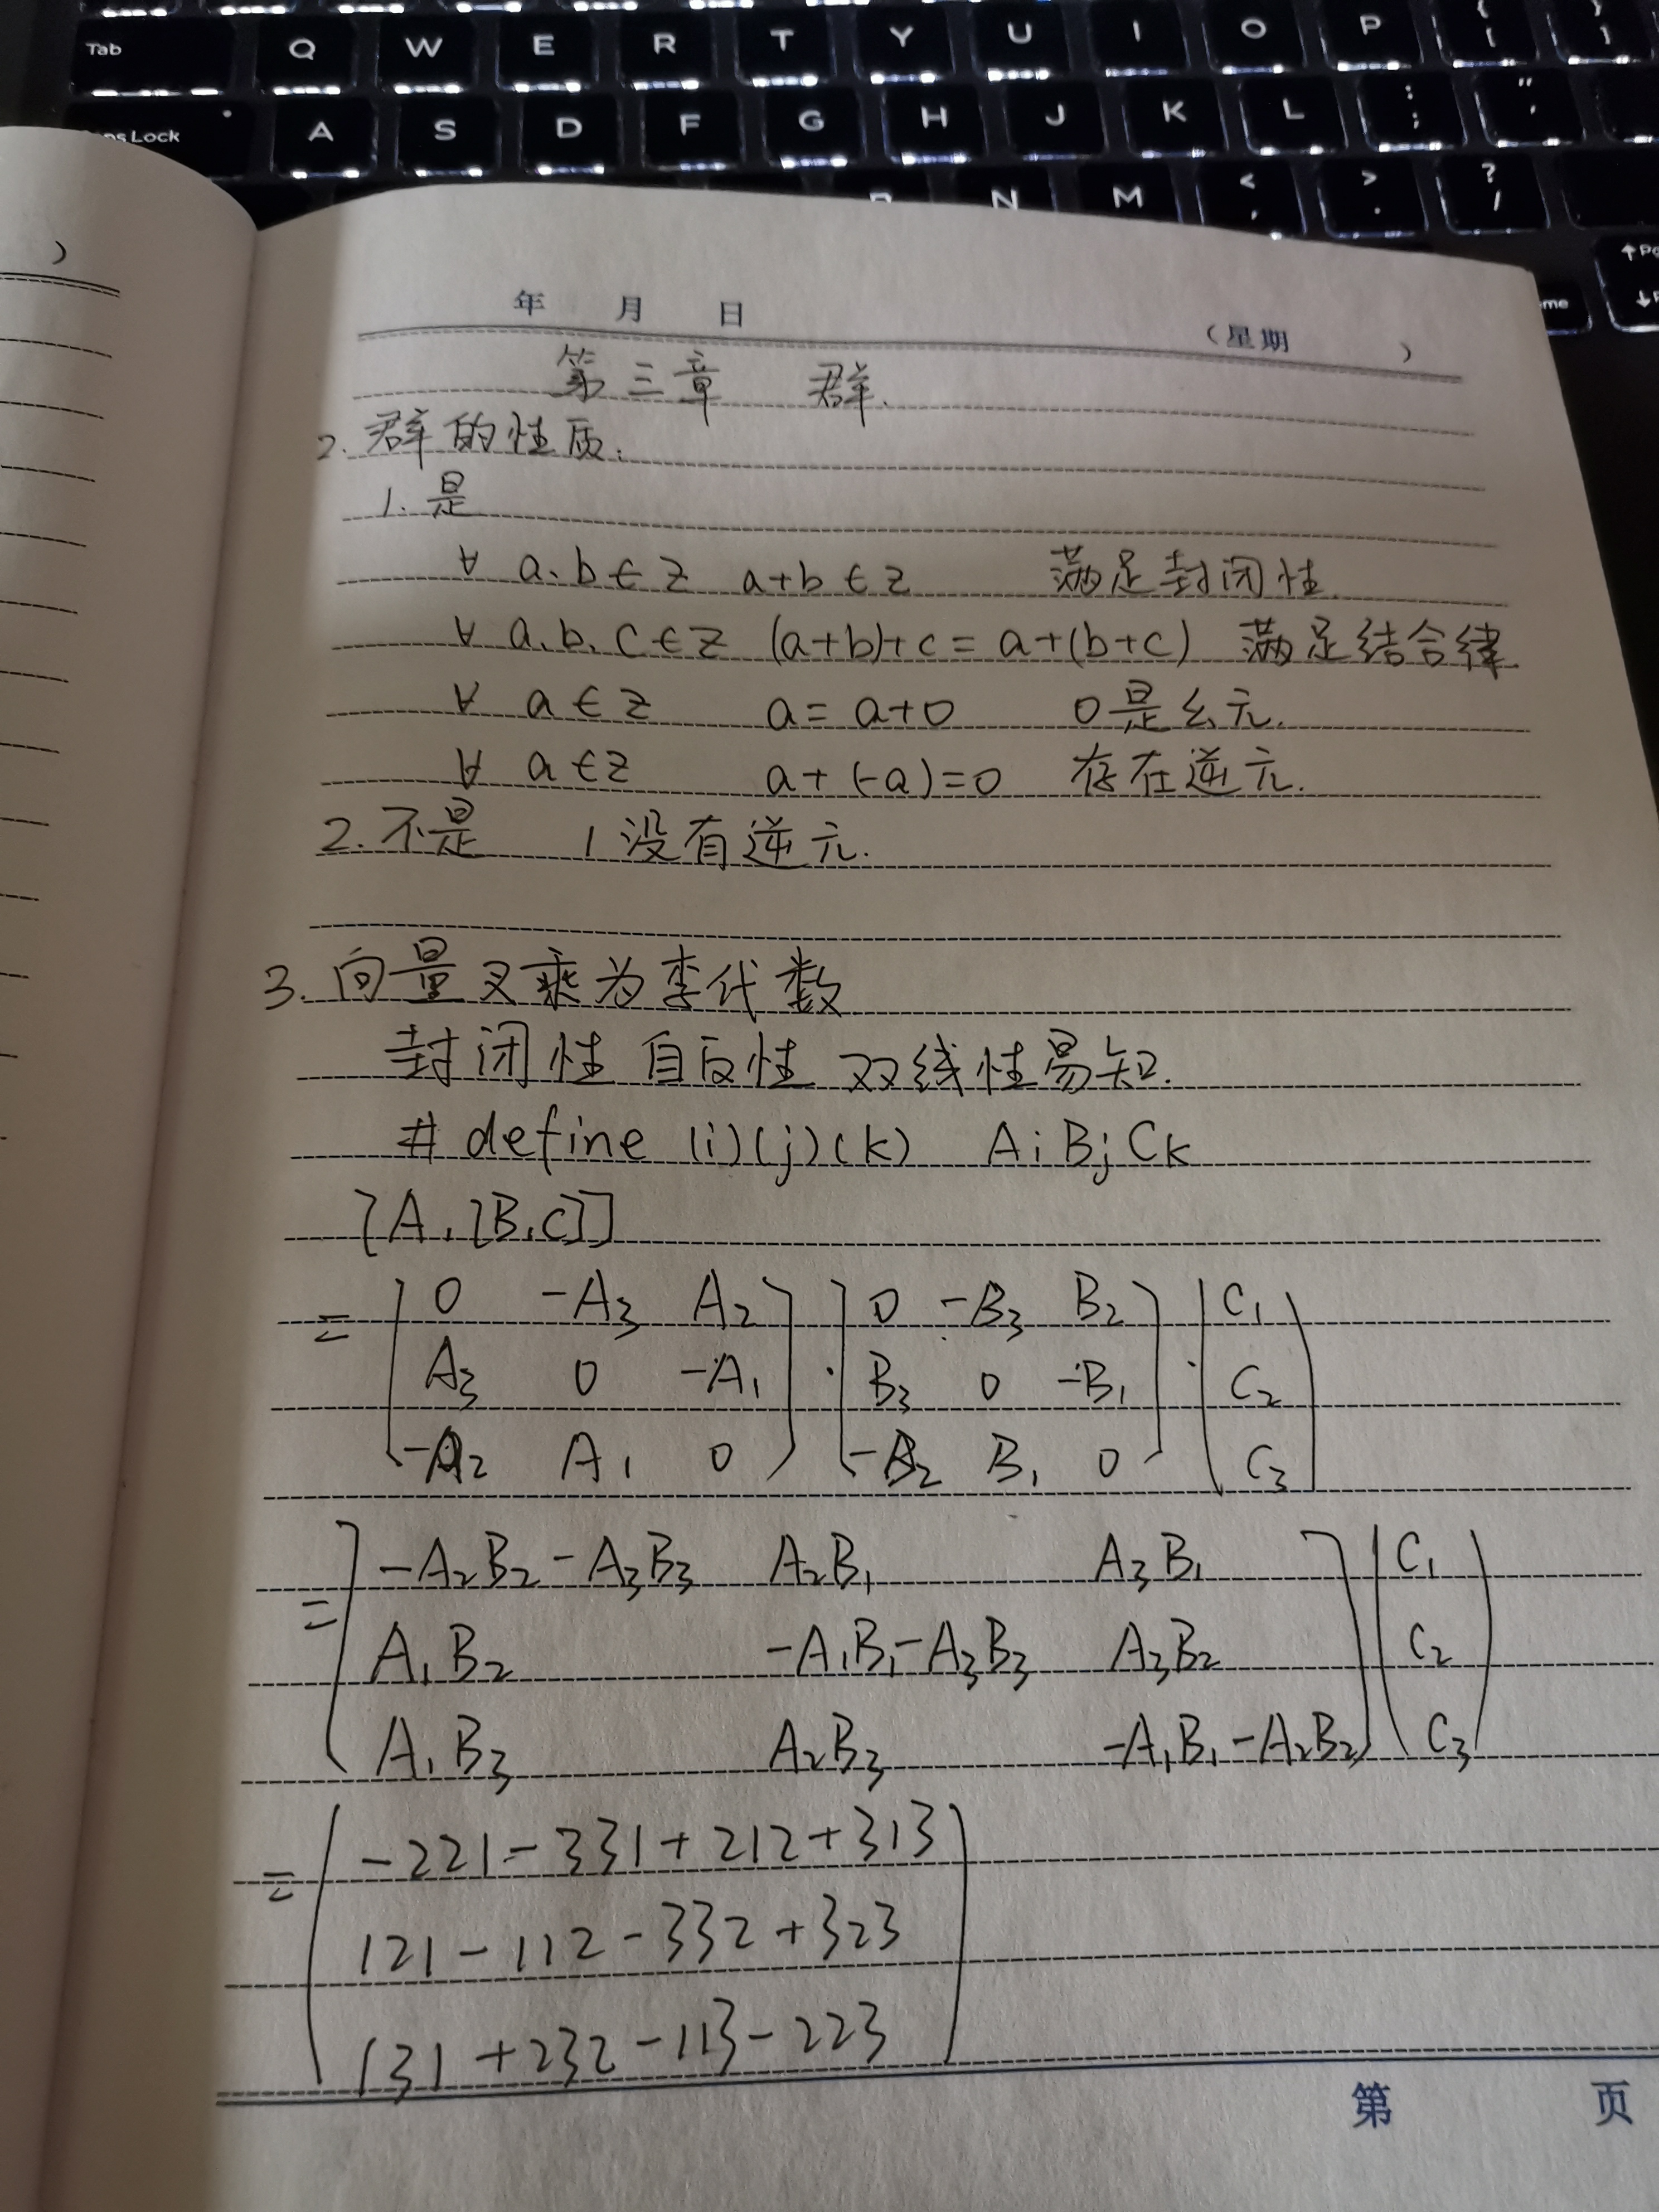 Tab Q W E R T Y U I O P { [ } ]
Lock A S D F G H J K L : ; " '
N M < , > . ? /
me
）
年 月 日 （星期 ）
第三章 群.
2. 群的性质:
1. 是
∀ a、b ∈ Z a+b ∈ Z 满足封闭性.
∀ a、b、c ∈ Z (a+b)+c = a+(b+c) 满足结合律
∀ a ∈ Z a = a+0 0是幺元.
∀ a ∈ Z a+(-a)=0 存在逆元.
2. 不是 1 没有逆元.
3. 向量叉乘为李代数
封闭性 自反性 双线性易知.
# define (i)(j)(k) AiBjCk
[A,[B,C]]
= [ 0 -A3 A2 ] · [ 0 -B3 B2 ] · ( C1 )
[ A3 0 -A1 ] [ B3 0 -B1 ] ( C2 )
[ -A2 A1 0 ] [ -B2 B1 0 ] ( C3 )
= [ -A2B2-A3B3 A2B1 A3B1 ] ( C1 )
[ A1B2 -A1B1-A3B3 A3B2 ] ( C2 )
[ A1B3 A2B3 -A1B1-A2B2 ] ( C3 )
= ( -221-331+212+313 )
( 121-112-332+323 )
( 131+232-113-223 )
第 页